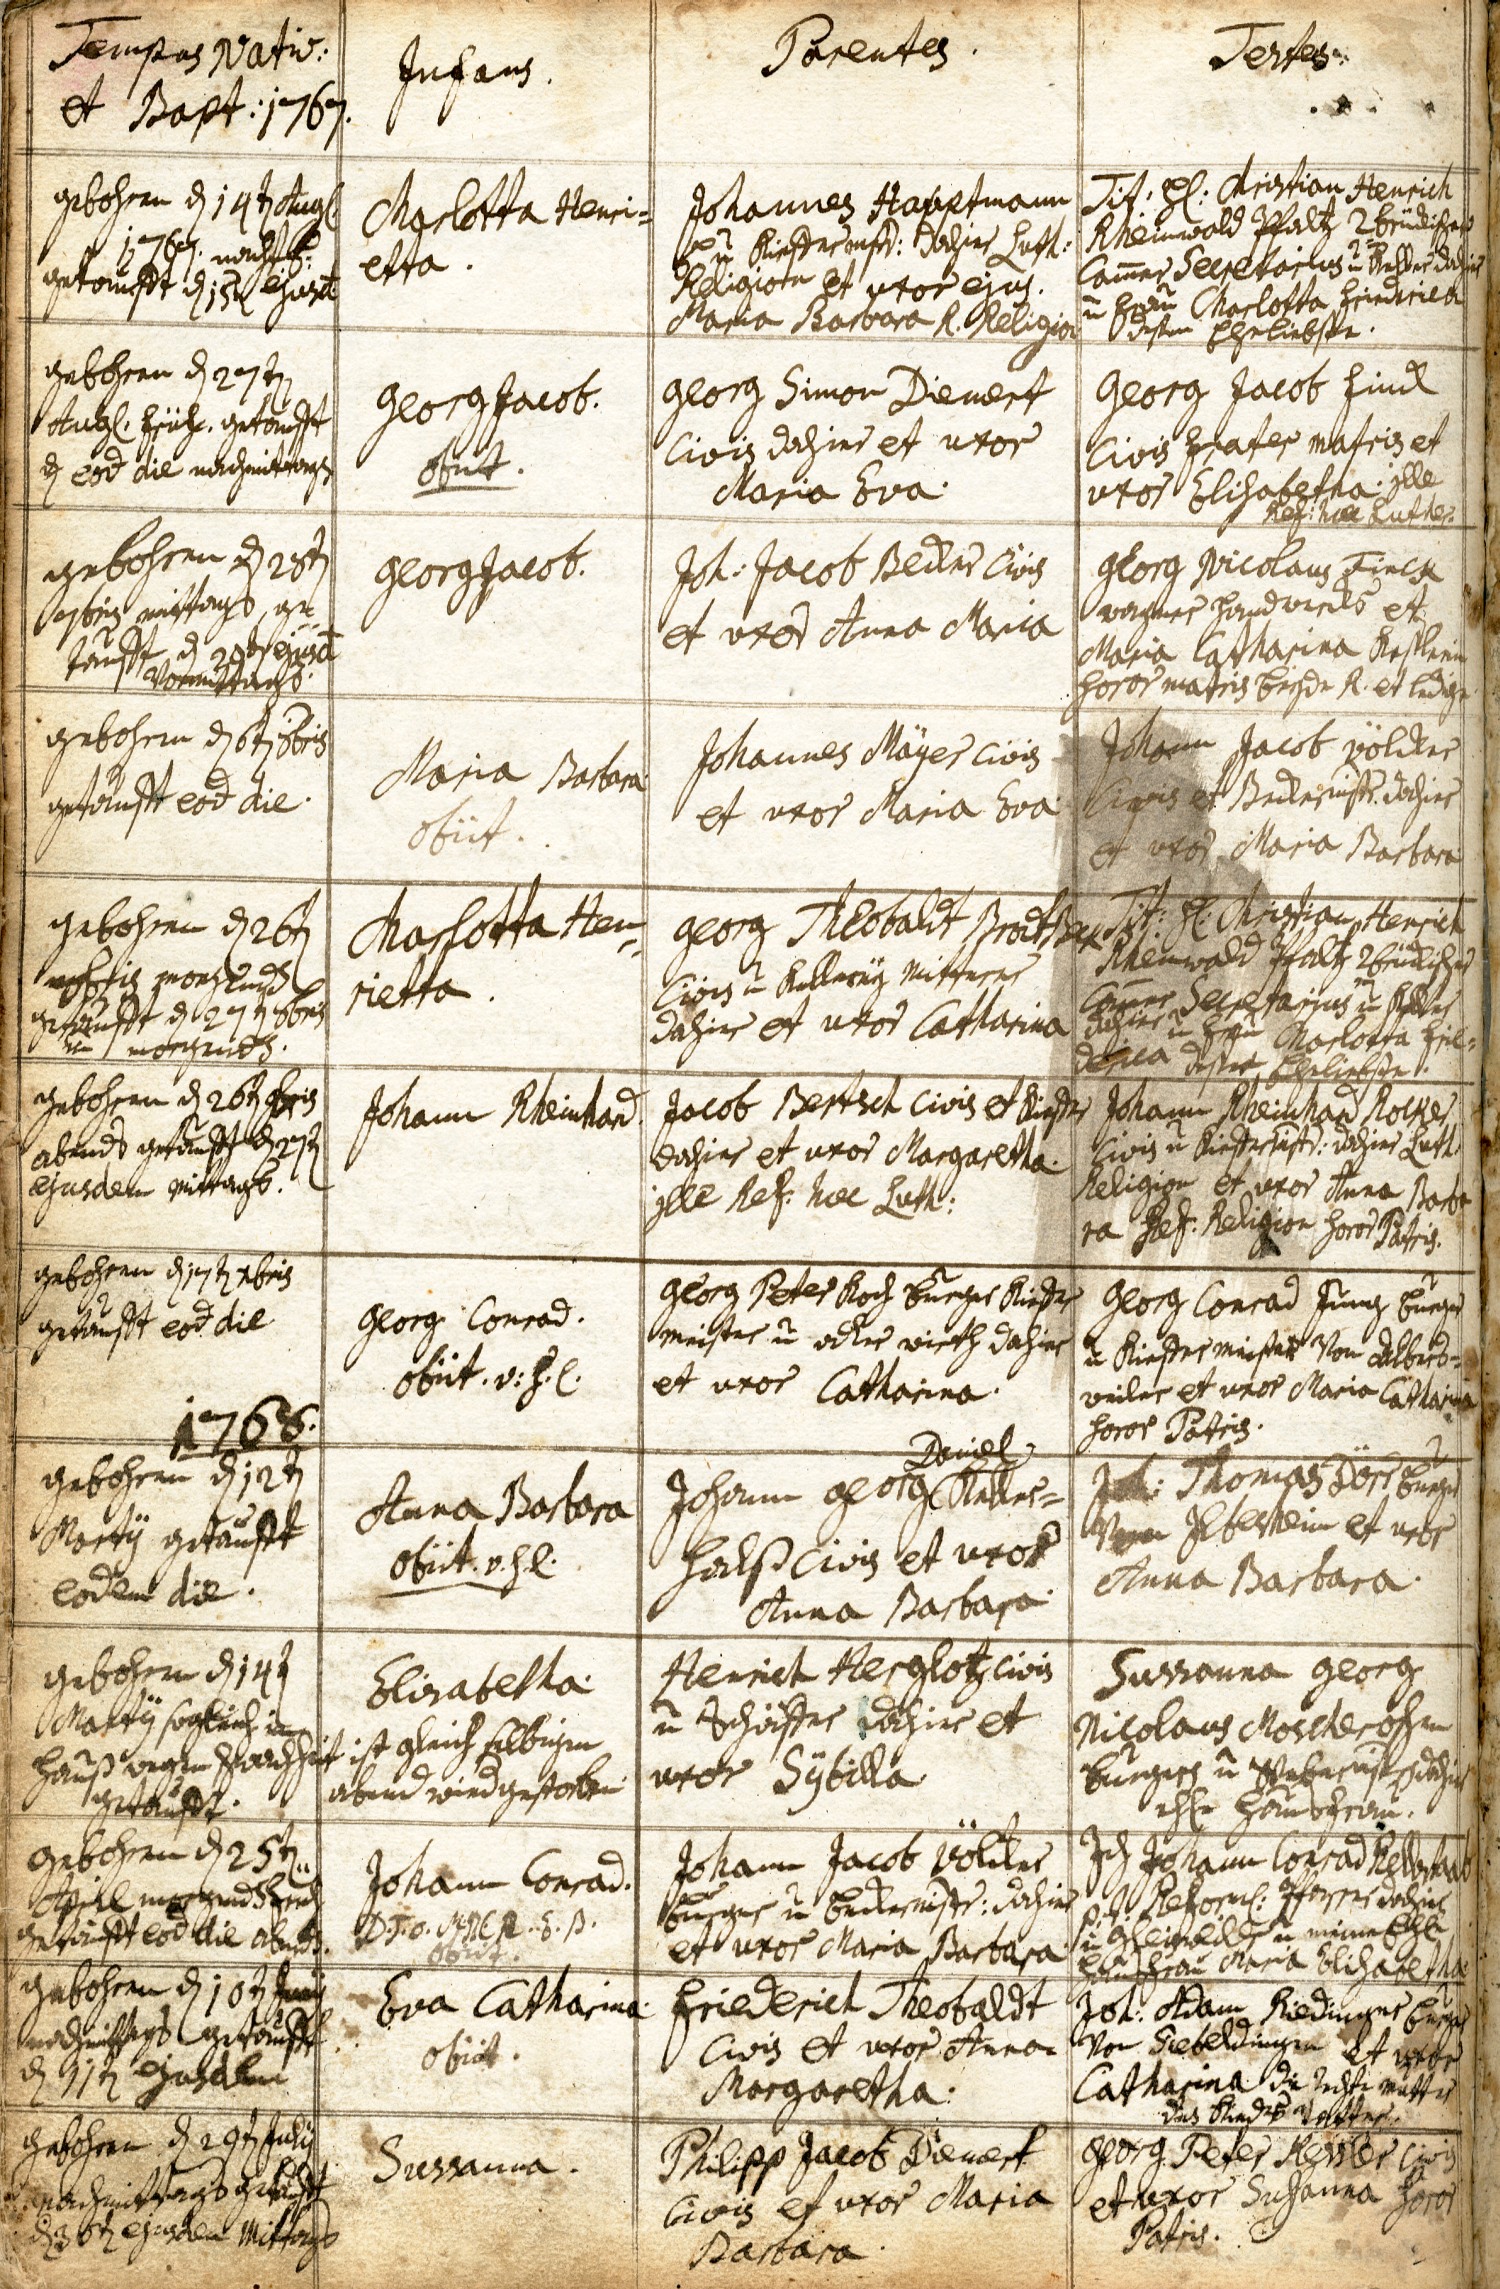 Tempus Nativ:
et Bapt: 1767.
Infans.
Parentes.
Testes.
gebohren d 14t Augl.
1767. nachts
getaufft d 15t ejusd
Charlotta Henri=
etta.
Johannes Hauptmann
dahier Luth:
Religion et uxor ejus.
Maria Barbara R. Religion
Tit: Christian Henrich
Rheinwald Pfaltz Zbrückischer
Cammer Secretarius u Keller dahier
u Frau Charlotta Friderica
dessen Eheliebste.
gebohren d 27t
Augl. frühe. getaufft
d eod die nachmittags
Georg Jacob.
obiit.
Georg Simon Dienert
Civis dahier et uxor
Maria Eva.
Georg Jacob Finck
Civis frater matris et
uxor Elisabetha. jlle
Ref: haec Luther.
gebohren d 28t
7bris mittags, ge=
taufft d 29t ejusd
Vormittags.
Georg Jacob.
Joh: Jacob Becker Civis
et uxor Anna Maria
Georg Nicolaus Finck
wagner handwercks et
Maria Catharina
soror matris beyde R. et ledig
gebohren d 6t 8bris
getaufft eod die.
Maria Barbara
obiit.
Johannes Mäyer Civis
et uxor Maria Eva
Johann Jacob Völcker
Civis et Beckermstr. dahier
et uxor Maria Barbara
gebohren d 26t
morgends
getaufft d 27t 8bris
morgends.
Charlotta Hen=
rietta.
Georg Theobaldt Brodtbeck
Civis u
dahier et uxor Catharina
Tit: Christian Henrich
Rheinwald Pfaltz Zbrückischer
Cammer Secretarius u Keller
dahier u Frau Charlotta Frie=
derica dessen Eheliebste.
gebohren d 26t
abends getaufft d 27t
ejusdem mittags.
Johann Rheinhard.
Jacob Bertsch Civis et Kieffer
dahier et uxor Margaretha.
jlle Ref: haec Luth:
Johann Rheinhard
Civis u Kieffermstr: dahier Luth.
Religion et uxor Anna Barba
ra Ref: Religion soror Patris.
gebohren d 17t xbris
getaufft eod die
Georg Conrad.
obiit. v: s. l.
Georg Peter Koch burger Kieffer
meister u wirth dahier
et uxor Catharina.
Georg Conrad Jung burger
u Kieffermeister Von Albers=
weiler et uxor Maria Catharina
soror Patris.
1768.
gebohren d 12t
Martÿ getaufft
eodem die.
Anna Barbara
obiit. v. s. l.
Daniel
Johann Georg Keller=
halß Civis et uxor
Anna Barbara
Joh: Thomas Dörr burger
Von Ilbesheim et uxor
Anna Barbara.
gebohren d 14t
Martÿ sogleich im
hauß wegen schwachheit
getaufft.
Elisabetha
ist gleich selbigen
abend wied gestorben
Henrich Herglotz Civis
u Schäffer dahier et
uxor Sÿbilla
Sussanna Georg
Nicolaus Moscheroschen
burgers u Webermstr dahier
ehl. haußfrau.
gebohren d 25t
April morgends
getaufft eod die abends.
Johann Conrad.
obiit.
Johann Jacob Völcker
burger u beckermstr: dahier
et uxor Maria Barbara
Ich Johann Conrad
p. t. Reform: Pfarrer dahier
u Gleisweiler u meine Ehl.
haußfrau Maria Elisabetha
gebohren d 10t
nachmittags getaufft
d 11t ejusdem
Eva Catharina
obiit.
Friederich Theobaldt
Civis et uxor Anna
Margaretha.
Joh: Adam Riedinger burger
Von Siebeldingen et uxor
Catharina die rechte mutter
des Kinds Vatters.
gebohren d 29t Julÿ
nachmittags getaufft
d 30t ejusdem Mittags
Sussanna.
Philipp Jacob Dienert
Civis et uxor Maria
Barbara.
Georg Peter Kessler Civis
et uxor Susanna soror
Patris.